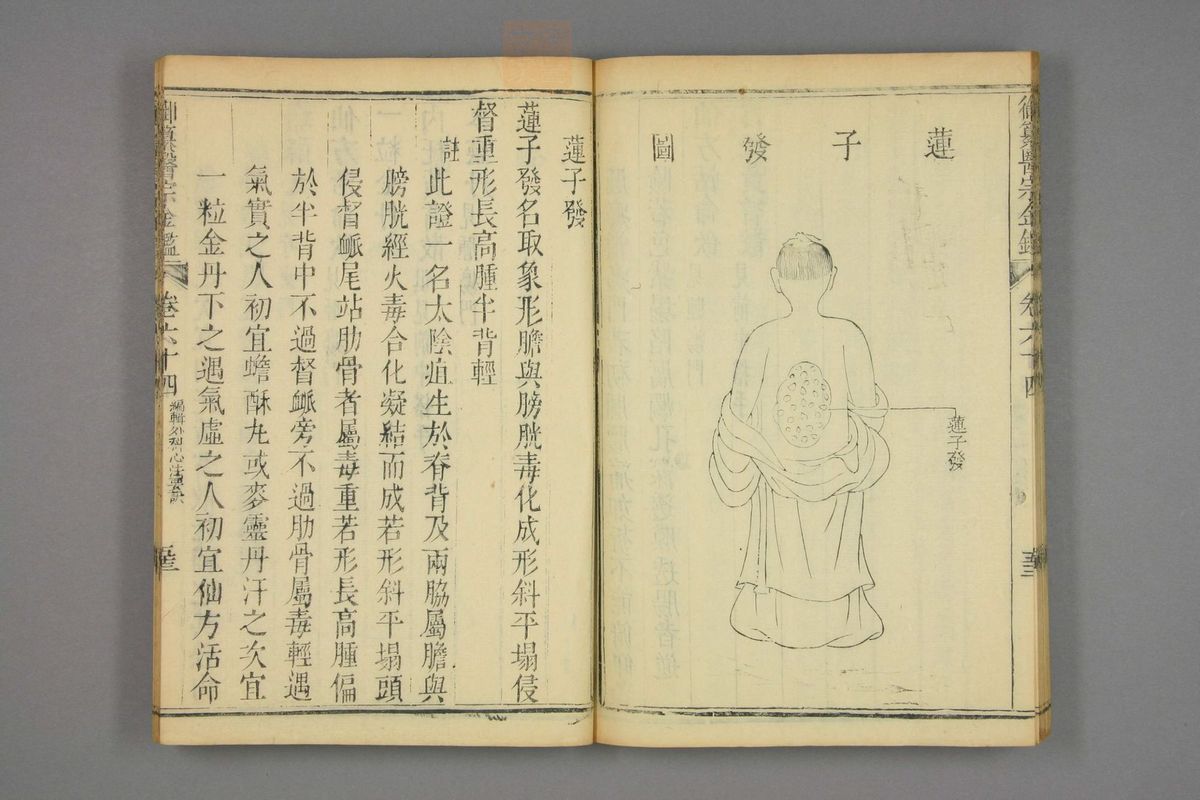 御纂醫宗金鑑
卷六十四
蓮子發圖
蓮子發
蓮子發
蓮子發名取象形膽與膀胱毒化成形斜平塌侵
督重形長高腫半背輕
註此證一名太陰疽生於脊背及兩脇屬膽與
膀胱經火毒合化凝結而成若形斜平塌頭
侵督脈尾站肋骨者屬毒重若形長高腫偏
於半背中不過督脈旁不過肋骨屬毒輕遇
氣實之人初宜蟾酥丸或麥靈丹汗之次宜
一粒金丹下之遇氣虛之人初宜仙方活命
御纂醫宗金鑑
卷六十四
編輯外科心法要訣